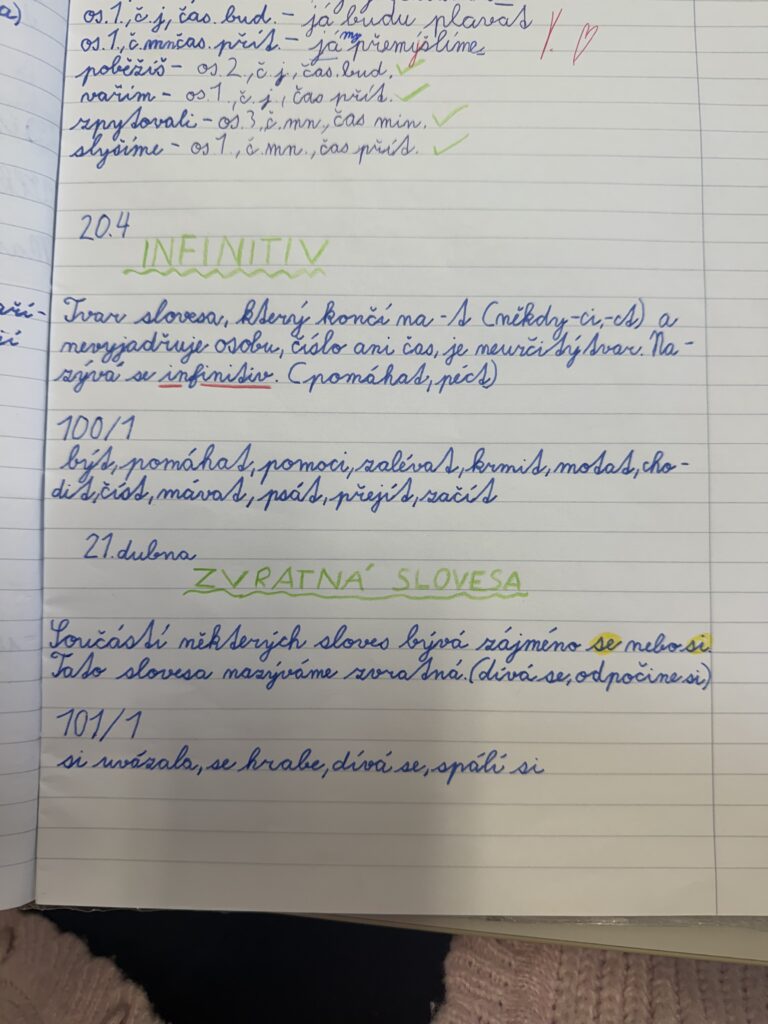 a)
os.1, č.j, čas. bud. – já budu plavat
os.1, č.mn čas. přít. – já my přemýšlíme
poběžíš – os. 2., č. j., čas. bud.
vařím – os. 1., č. j., čas přít.
zpytovali – os. 3, č. mn., čas min.
slyšíme – os 1., č. mn., čas přít.
20.4
INFINITIV
Tvar slovesa, který končí na -t (někdy -ci, -ct) a
nevyjadřuje osobu, číslo ani čas, je neurčitý tvar. Na-
zývá se infinitiv. (pomáhat, péct)
100/1
být, pomáhat, pomoci, zalévat, krmit, motat, cho-
dit, číst, mávat, psát, přejít, začít
21. dubna
ZVRATNÁ SLOVESA
Součástí některých sloves bývá zájméno se nebo si.
Tato slovesa nazýváme zvratná. (dívá se, odpočine si)
101/1
si uvázala, se hrabe, dívá se, spálí si